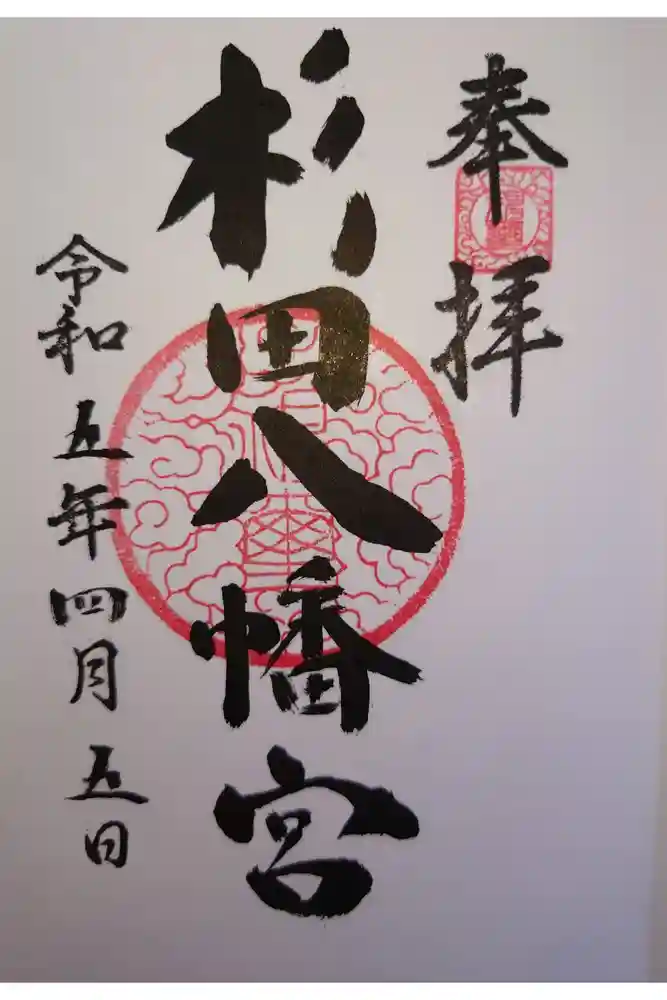 奉拝
杉田八幡宮
令和五年四月五日